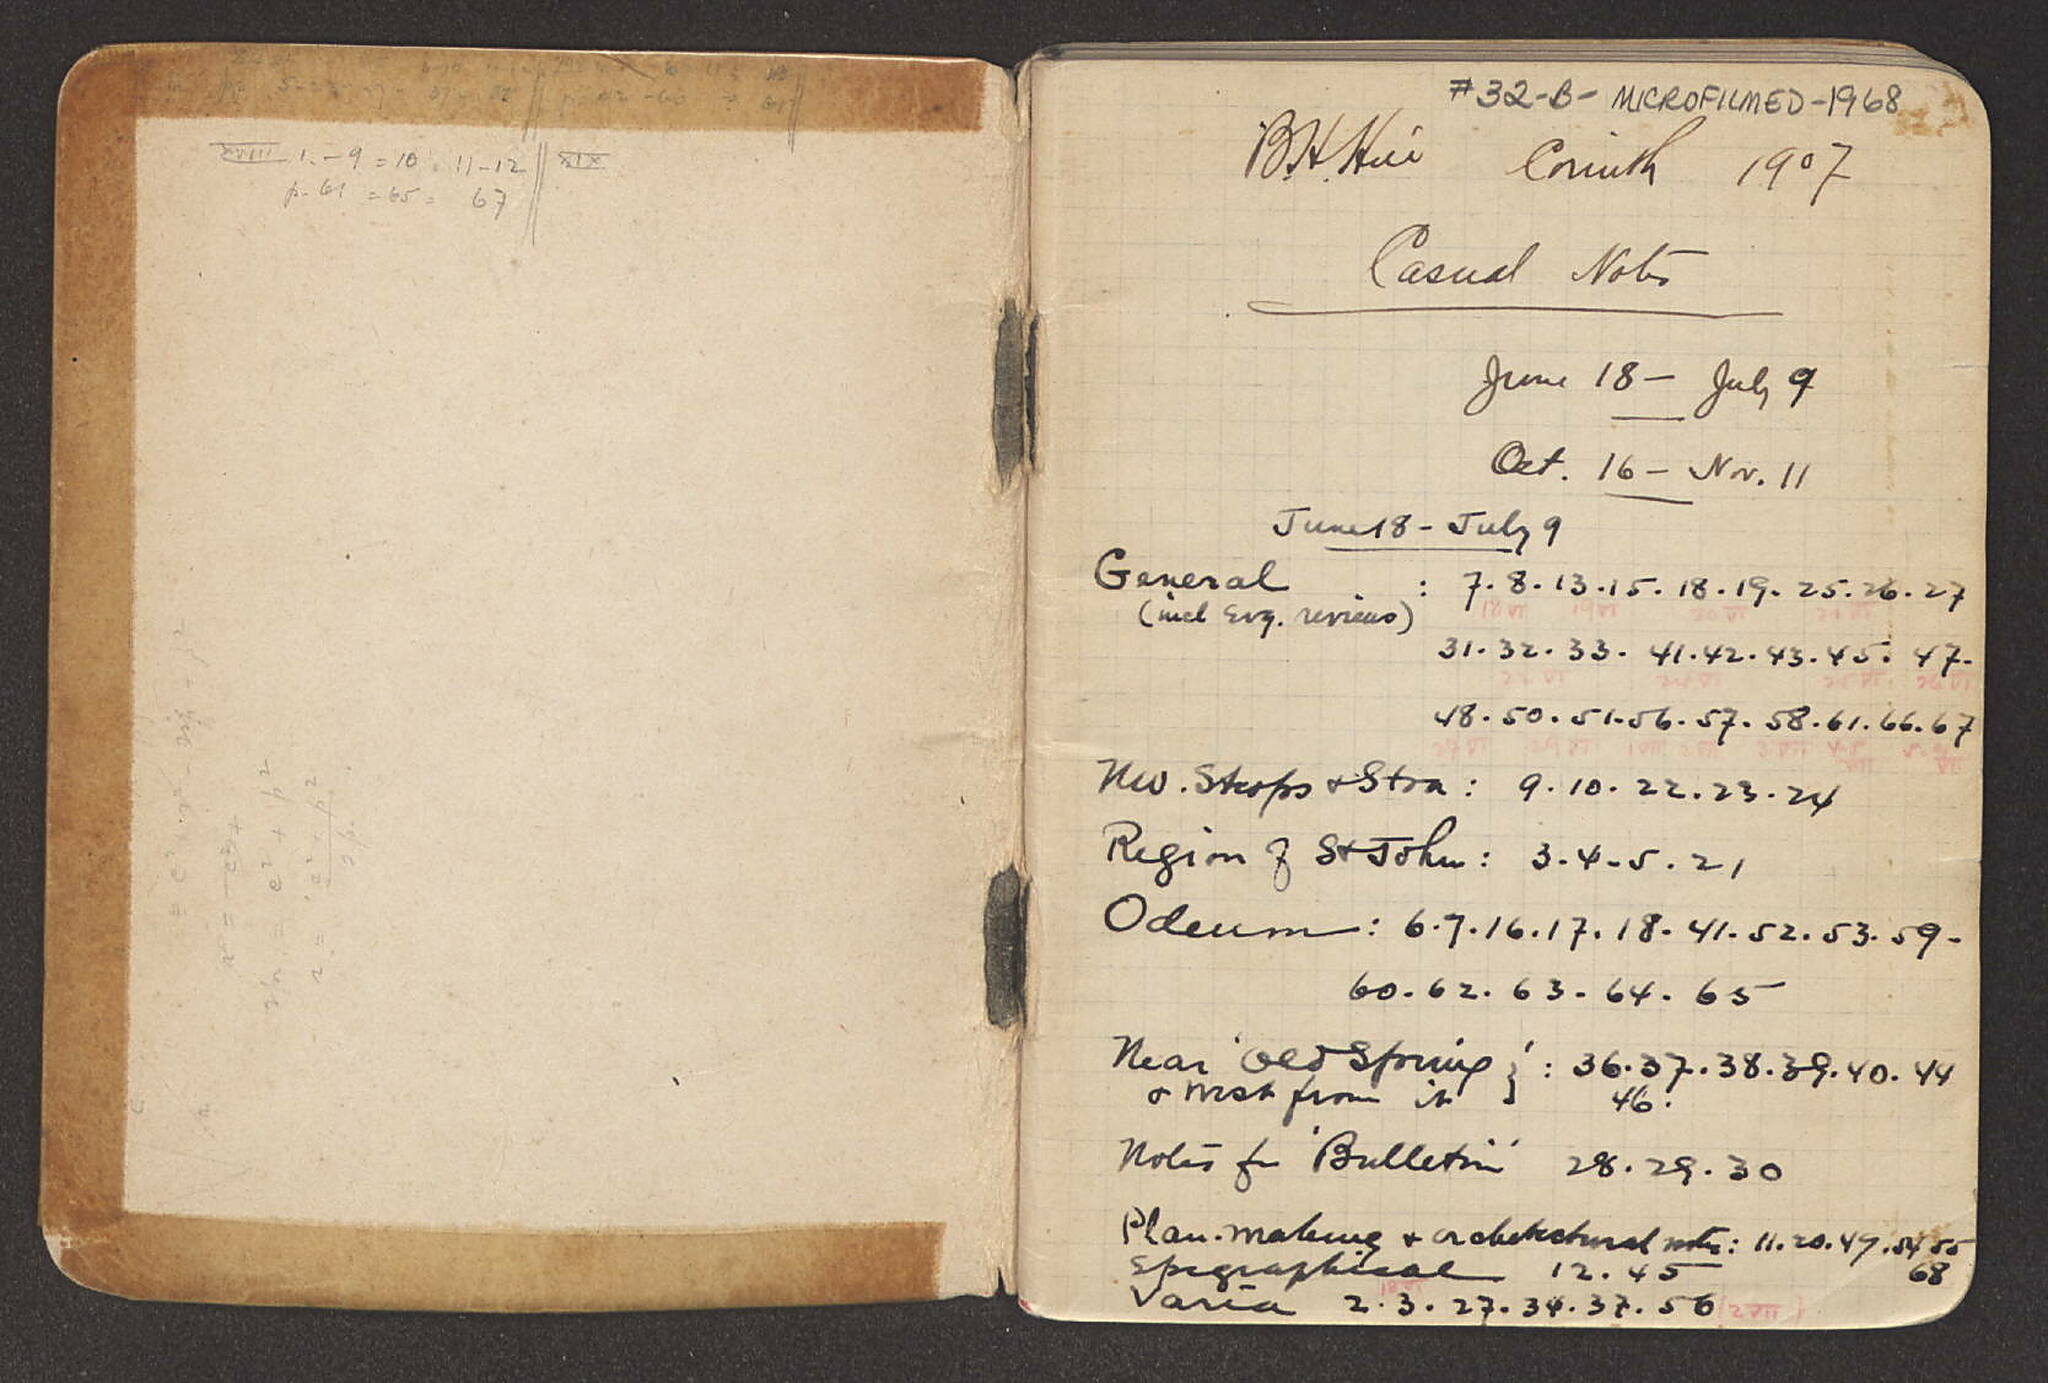 XVIII 1. - 9 = 10. 11-12 || XIX
p. 61 = 65 = 67
#32-B- MICROFILMED-1968
B.H. Hill Corinth 1907
Casual Notes
June 18 - July 9
Oct. 16 - Nov. 11
June 18 - July 9
General : 7. 8. 13. 15. 18. 19. 25. 26. 27
(incl Evg. reviews)
31. 32. 33. 41. 42. 43. 45. 47.
48. 50. 51. 56. 57. 58. 61. 66. 67
NW. Shops & Stoa : 9. 10. 22. 23. 24
Region of St John : 3. 4. 5. 21
Odeum : 6. 7. 16. 17. 18. 41. 52. 53. 59.
60. 62. 63. 64. 65
Near 'Old Spring' } : 36. 37. 38. 39. 40. 44
& West from it 46.
Notes for 'Bulletin' 28. 29. 30
Plan-making & architectural notes : 11. 20. 49. 54 55
Epigraphical 12. 45 68
Varia 2. 3. 27. 34. 37. 56